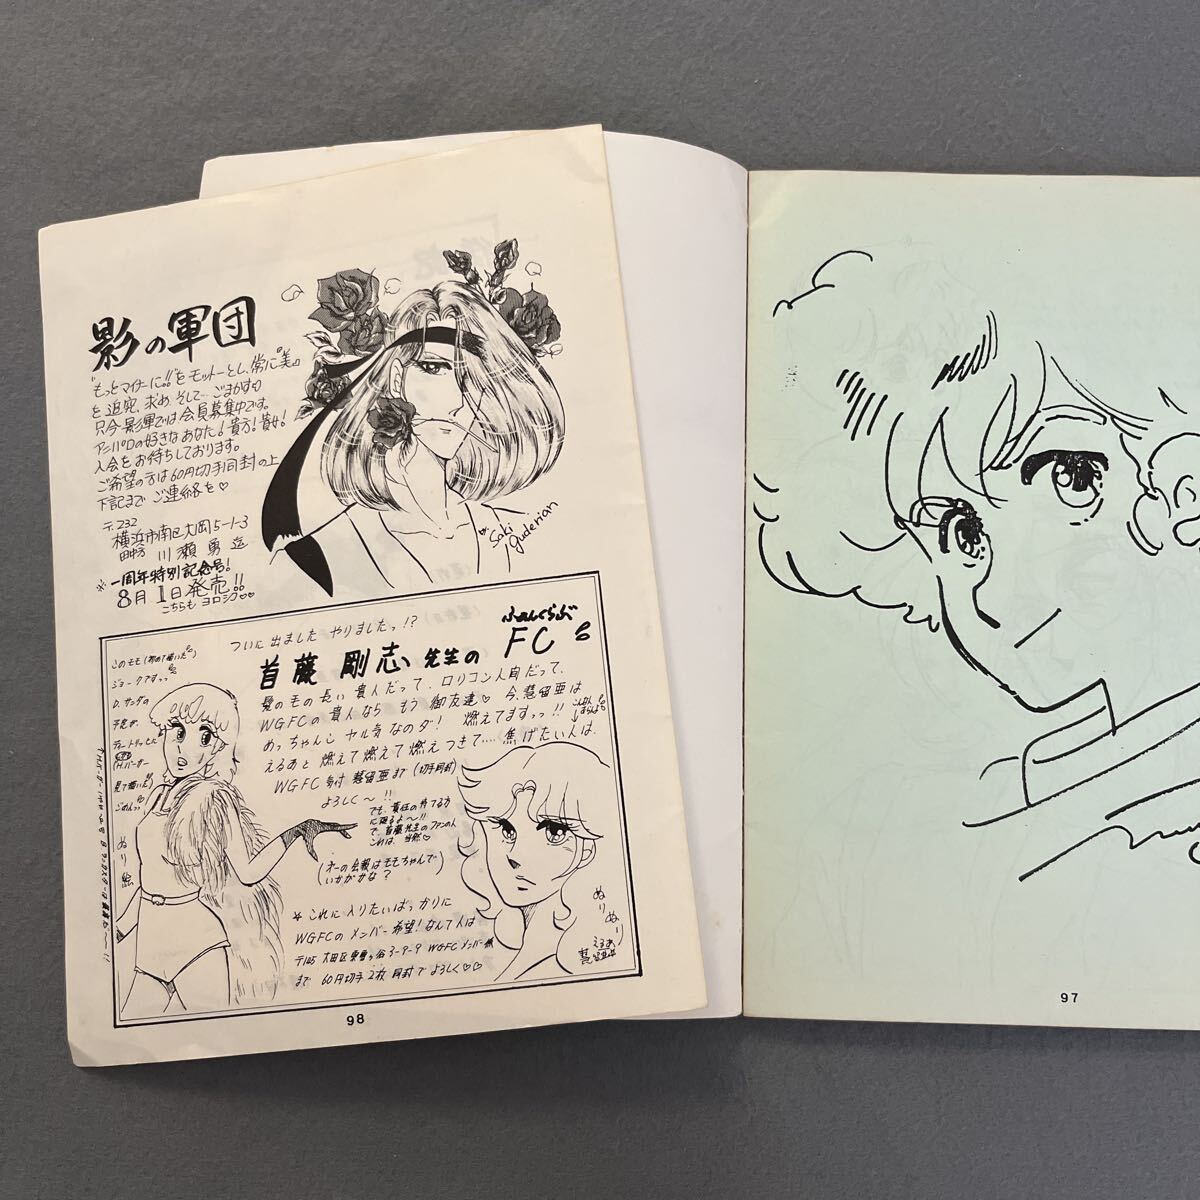 影の軍団
"もっとマイナーに!!"をモットーとし、常に『美』
を追究、求め、そして…ごまかす
只今影軍では会員募集中です。
アニパロの好きなあなた!貴方!貴女!
入会をお待ちしております。
ご希望の方は60円切手同封の上
下記までご連絡を♡
〒232
横浜市南区大岡5-1-3
田中方 川瀬勇 迄
※一周年特別記念号!
8月1日発売!!
こちらもヨロシク♡♡
by. Saki
Guderian
ついに出ましたやりましたっ!?
首藤剛志先生の
ふぁんくらぶ
FC
髪の毛の長い貴人だって、ロリコン人間だって、
WGFCの貴人なら もう御友達♡ 今、慧留亜は
めっちゃんこ ヤル気なのダ! 燃えてますっっ!!
えるあと 燃えて燃えて燃えつきて…焦げたい人は、
WGFC 気付 慧留亜まで(切手同封)
よろしく〜!!
でも、責任の持てる方
に限るよ〜!!
で、首藤先生のファンの人
これは、当然♡
(次の会報はモモちゃんで
いかがかな?)
☆これに入りたいばっかりに
WGFCのメンバー希望!なんて人は
〒145 大田区東雪ヶ谷3-9-9 WGFCメンバー係
まで 60円切手2枚同封でよろしく♡♡
このモモ(初めて描いた)
ジョークですっっ
ぬり絵
ぬりぬり
えるあ
慧留亜
98
97